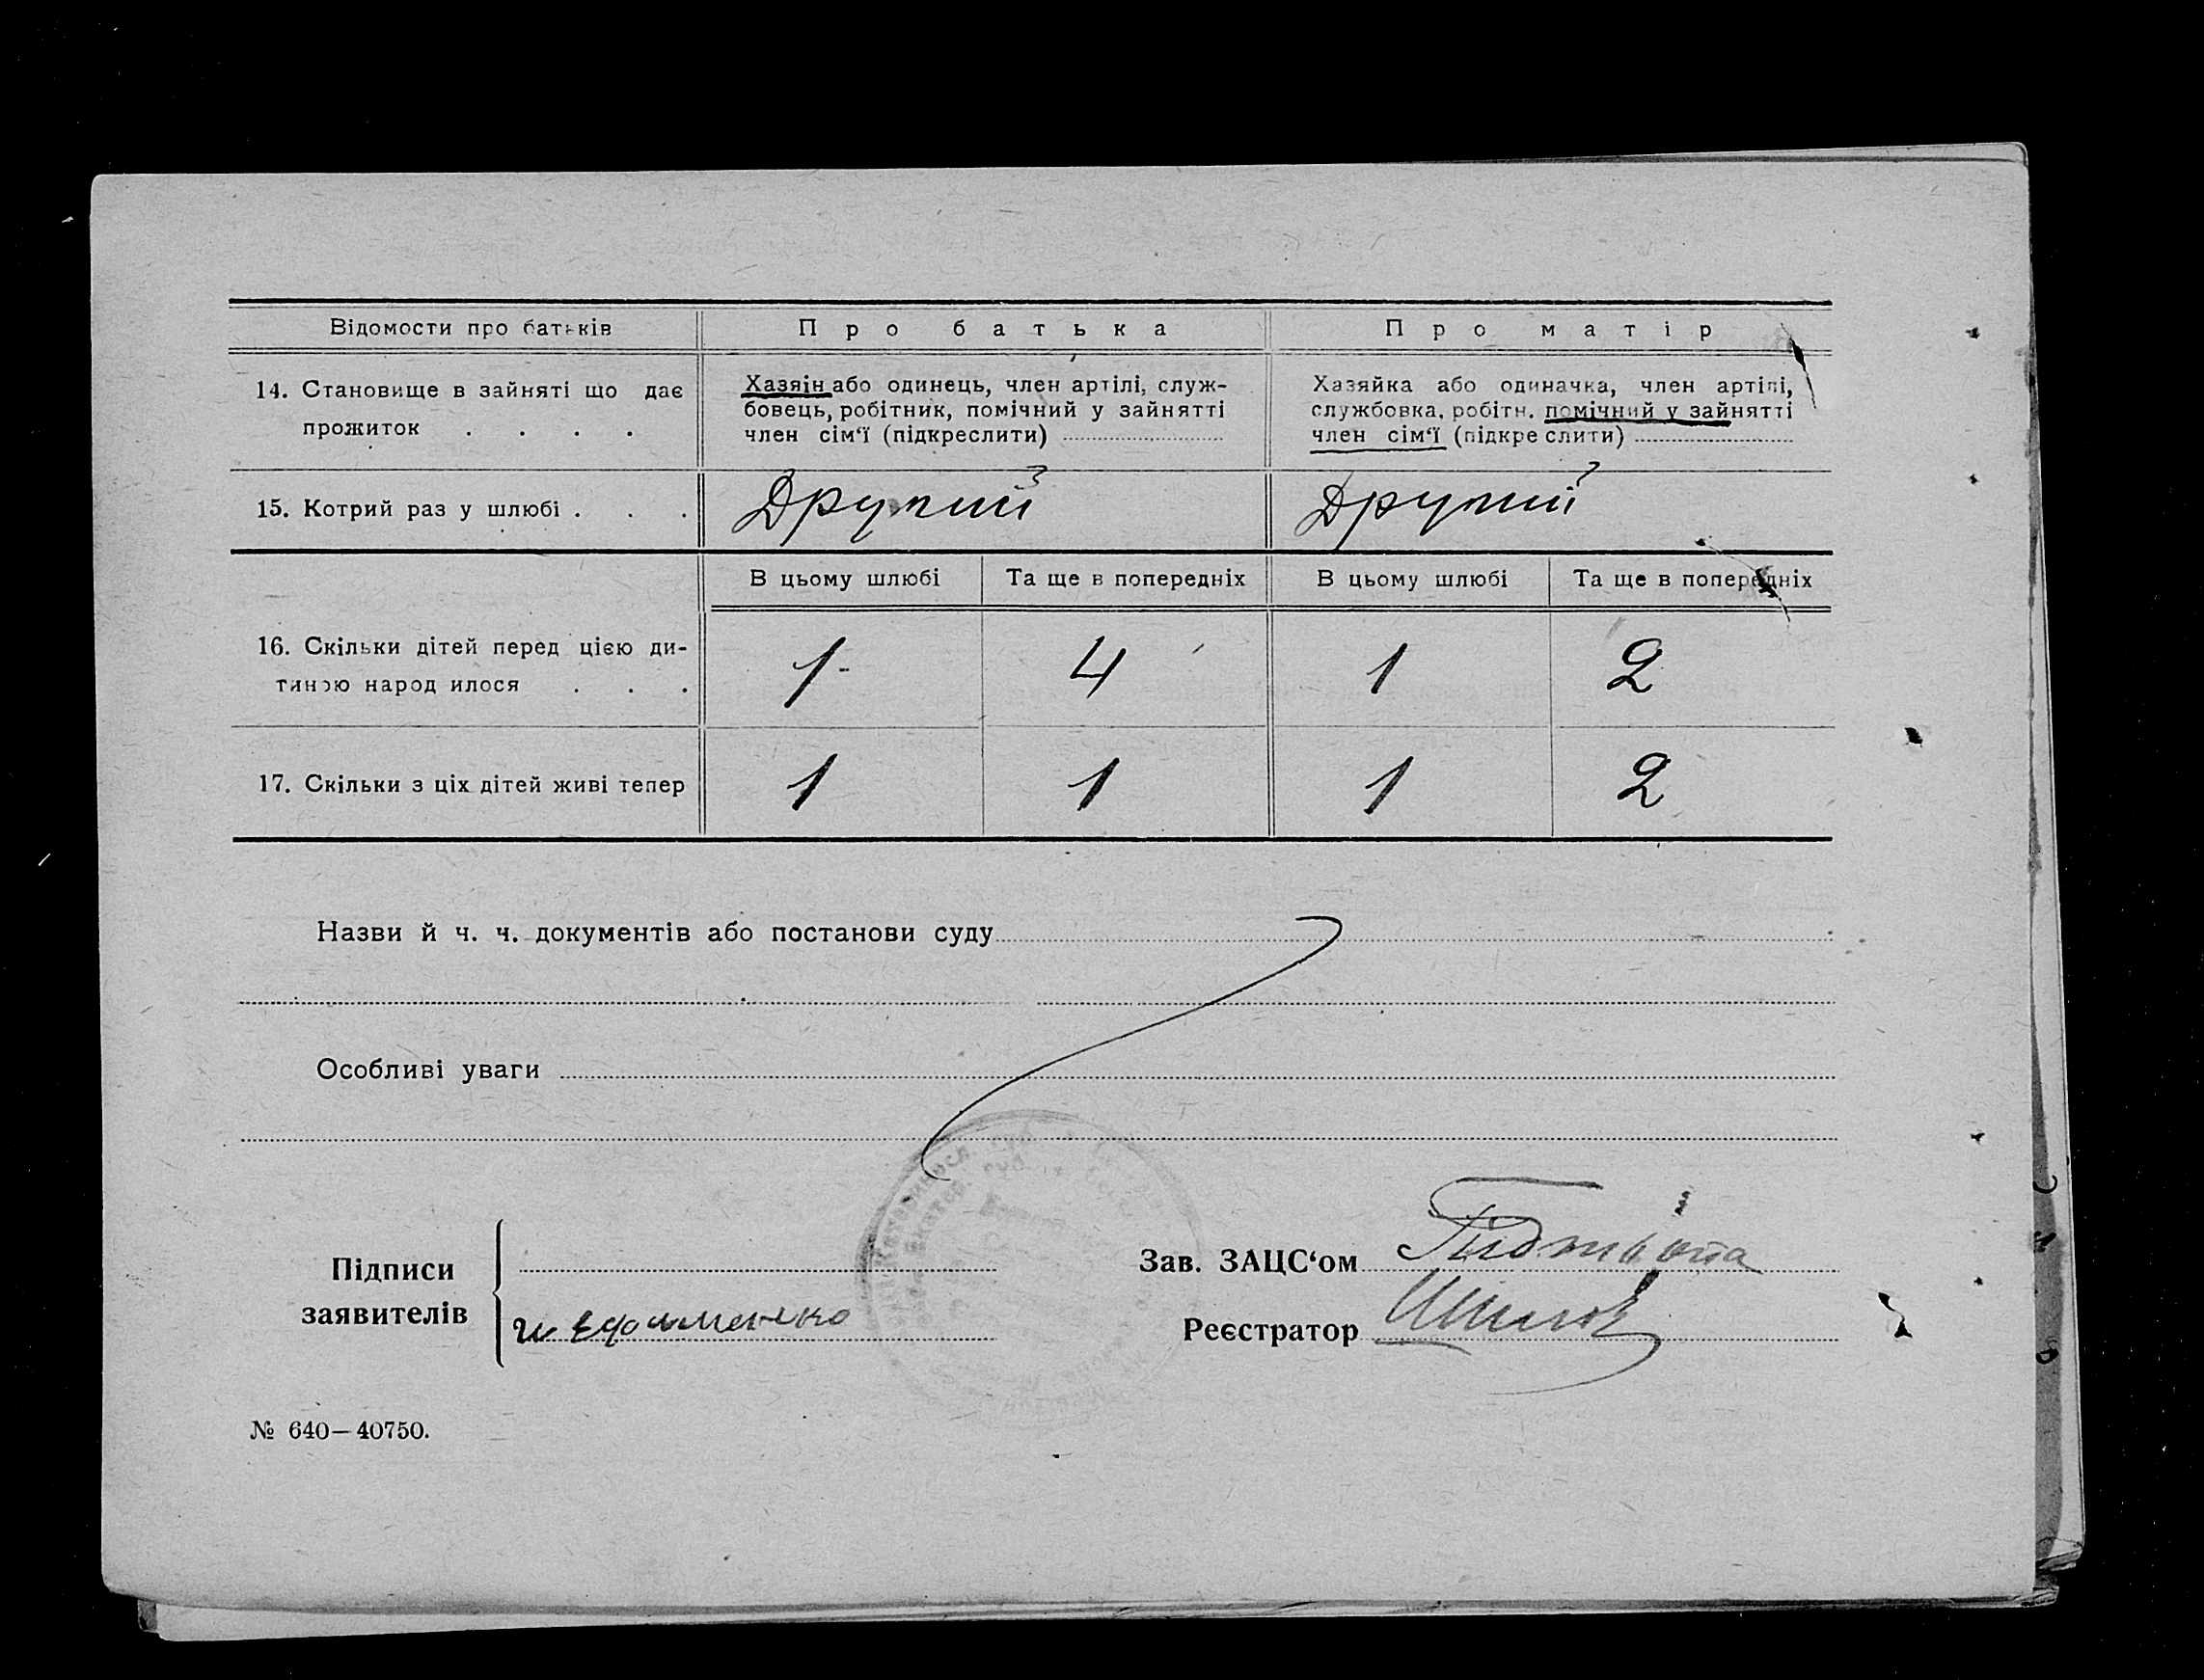 Відомости про батьків
Про батька
Про матір
14. Становище в зайняті що дає
прожиток . . . .
Хазяін або одинець, член артілі, служ-
бовець, робітник, помічний у зайнятті
член сім‘ї (підкреслити)
Хазяйка або одиначка, член артілі,
службовка, робітн. помічний у зайнятті
член сім‘ї (підкре слити)
15. Котрий раз у шлюбі . . .
Другий
Другий
В цьому шлюбі
Та ще в попередніх
В цьому шлюбі
Та ще в попередніх
16. Скільки дітей перед цією ди-
тиною народ илося . . .
1-
4
1
2
17. Скільки з ціх дітей живі тепер
1
1
1
2
Назви й ч. ч. документів або постанови суду
Особливі уваги
Підписи
заявителів
Зав. ЗАЦС‘ом
Реєстратор
№ 640—40750.